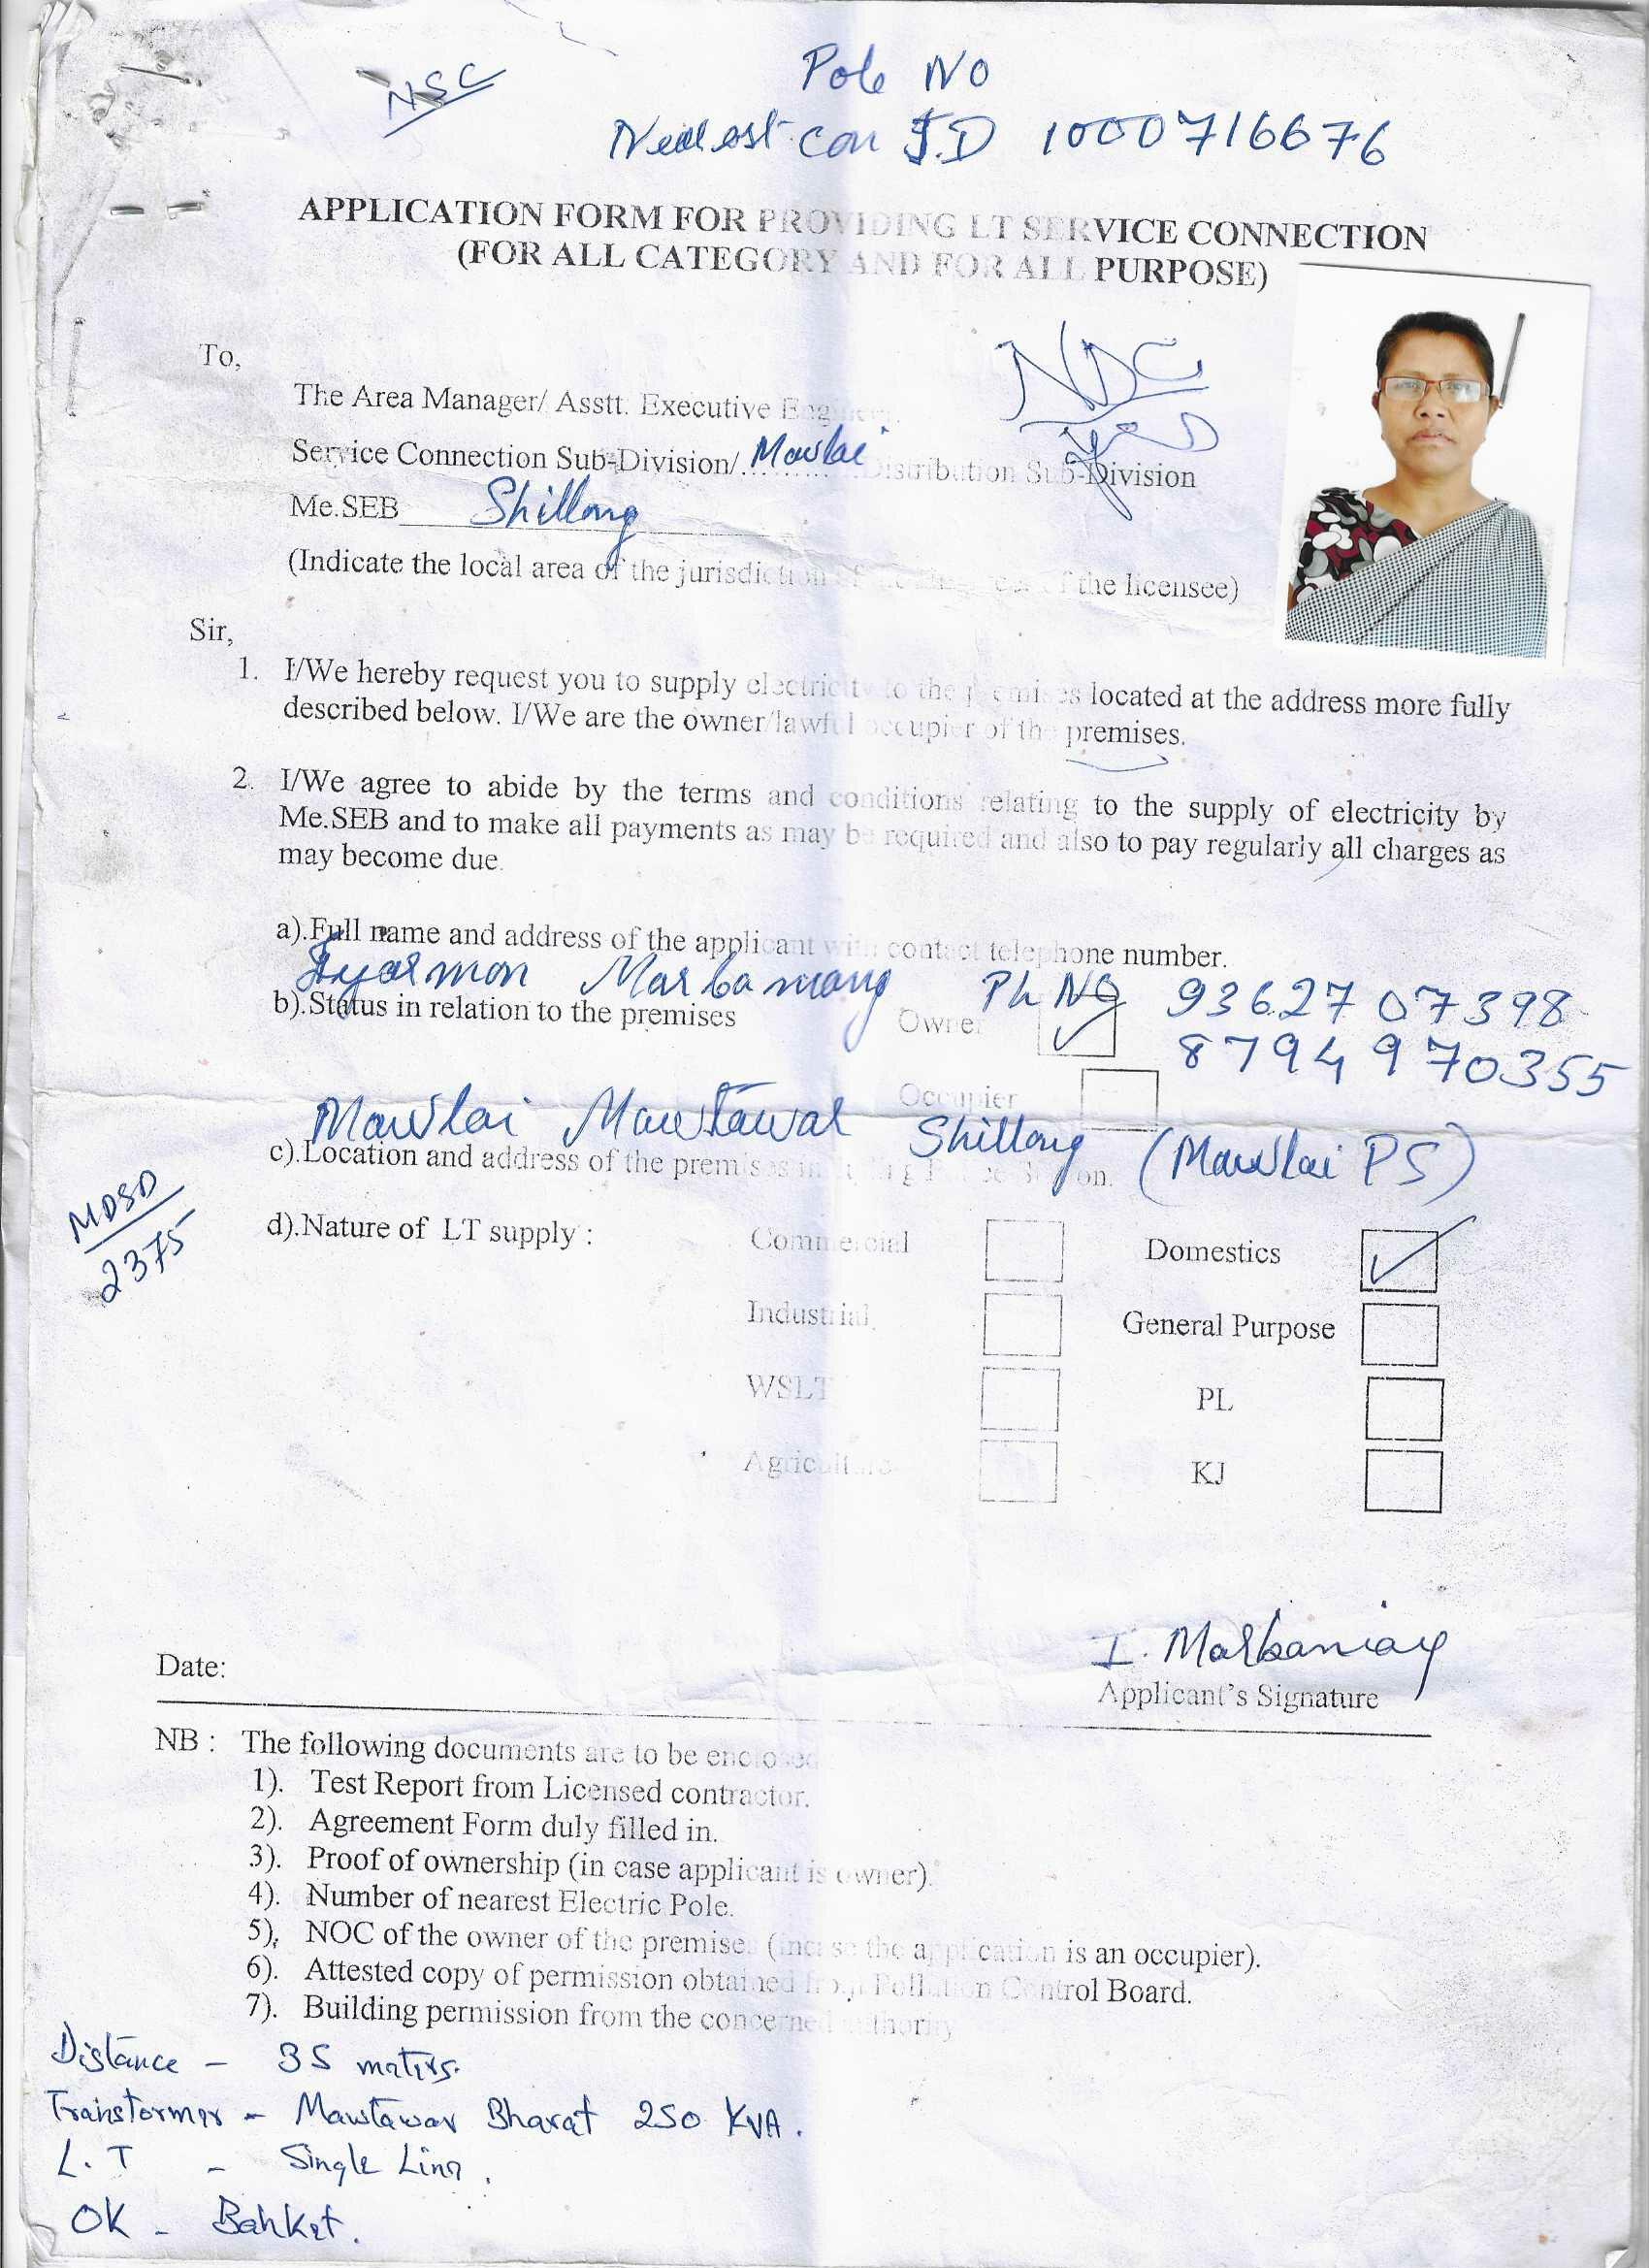 NSC
Pole No
Nearest con I.D 1000716676
APPLICATION FORM FOR PROVIDING LT SERVICE CONNECTION
(FOR ALL CATEGORY AND FOR ALL PURPOSE)
To,
The Area Manager/ Asstt. Executive Engineer
Service Connection Sub-Division/ Mawlai Distribution Sub-Division
Me.SEB Shillong
(Indicate the local area of the jurisdiction of the licensee)
Sir,
1. I/We hereby request you to supply electricity to the premises located at the address more fully
described below. I/We are the owner/lawful occupier of the premises.
2. I/We agree to abide by the terms and conditions relating to the supply of electricity by
Me.SEB and to make all payments as may be required and also to pay regularly all charges as
may become due.
a).Full name and address of the applicant with contact telephone number.
Marbaniang Ph No 9362707398
b).Status in relation to the premises Owner
8794970355
Occupier
Mawlai Mawtawar Shillong (Mawlai PS)
c).Location and address of the premises
MDSD
2375
d).Nature of LT supply : Commercial Domestics
Industrial General Purpose
WSLT PL
Agriculture KJ
I. Marbaniang
Date: Applicant's Signature
NB : The following documents are to be enclosed
1). Test Report from Licensed contractor.
2). Agreement Form duly filled in.
3). Proof of ownership (in case applicant is owner).
4). Number of nearest Electric Pole.
5), NOC of the owner of the premises (incase the application is an occupier).
6). Attested copy of permission obtained from Pollution Control Board.
7). Building permission from the concerned authority
Distance - 35 meters.
Transformer - Mawtawar Bharat 250 KVA.
L.T - Single Line.
OK - Bahket.